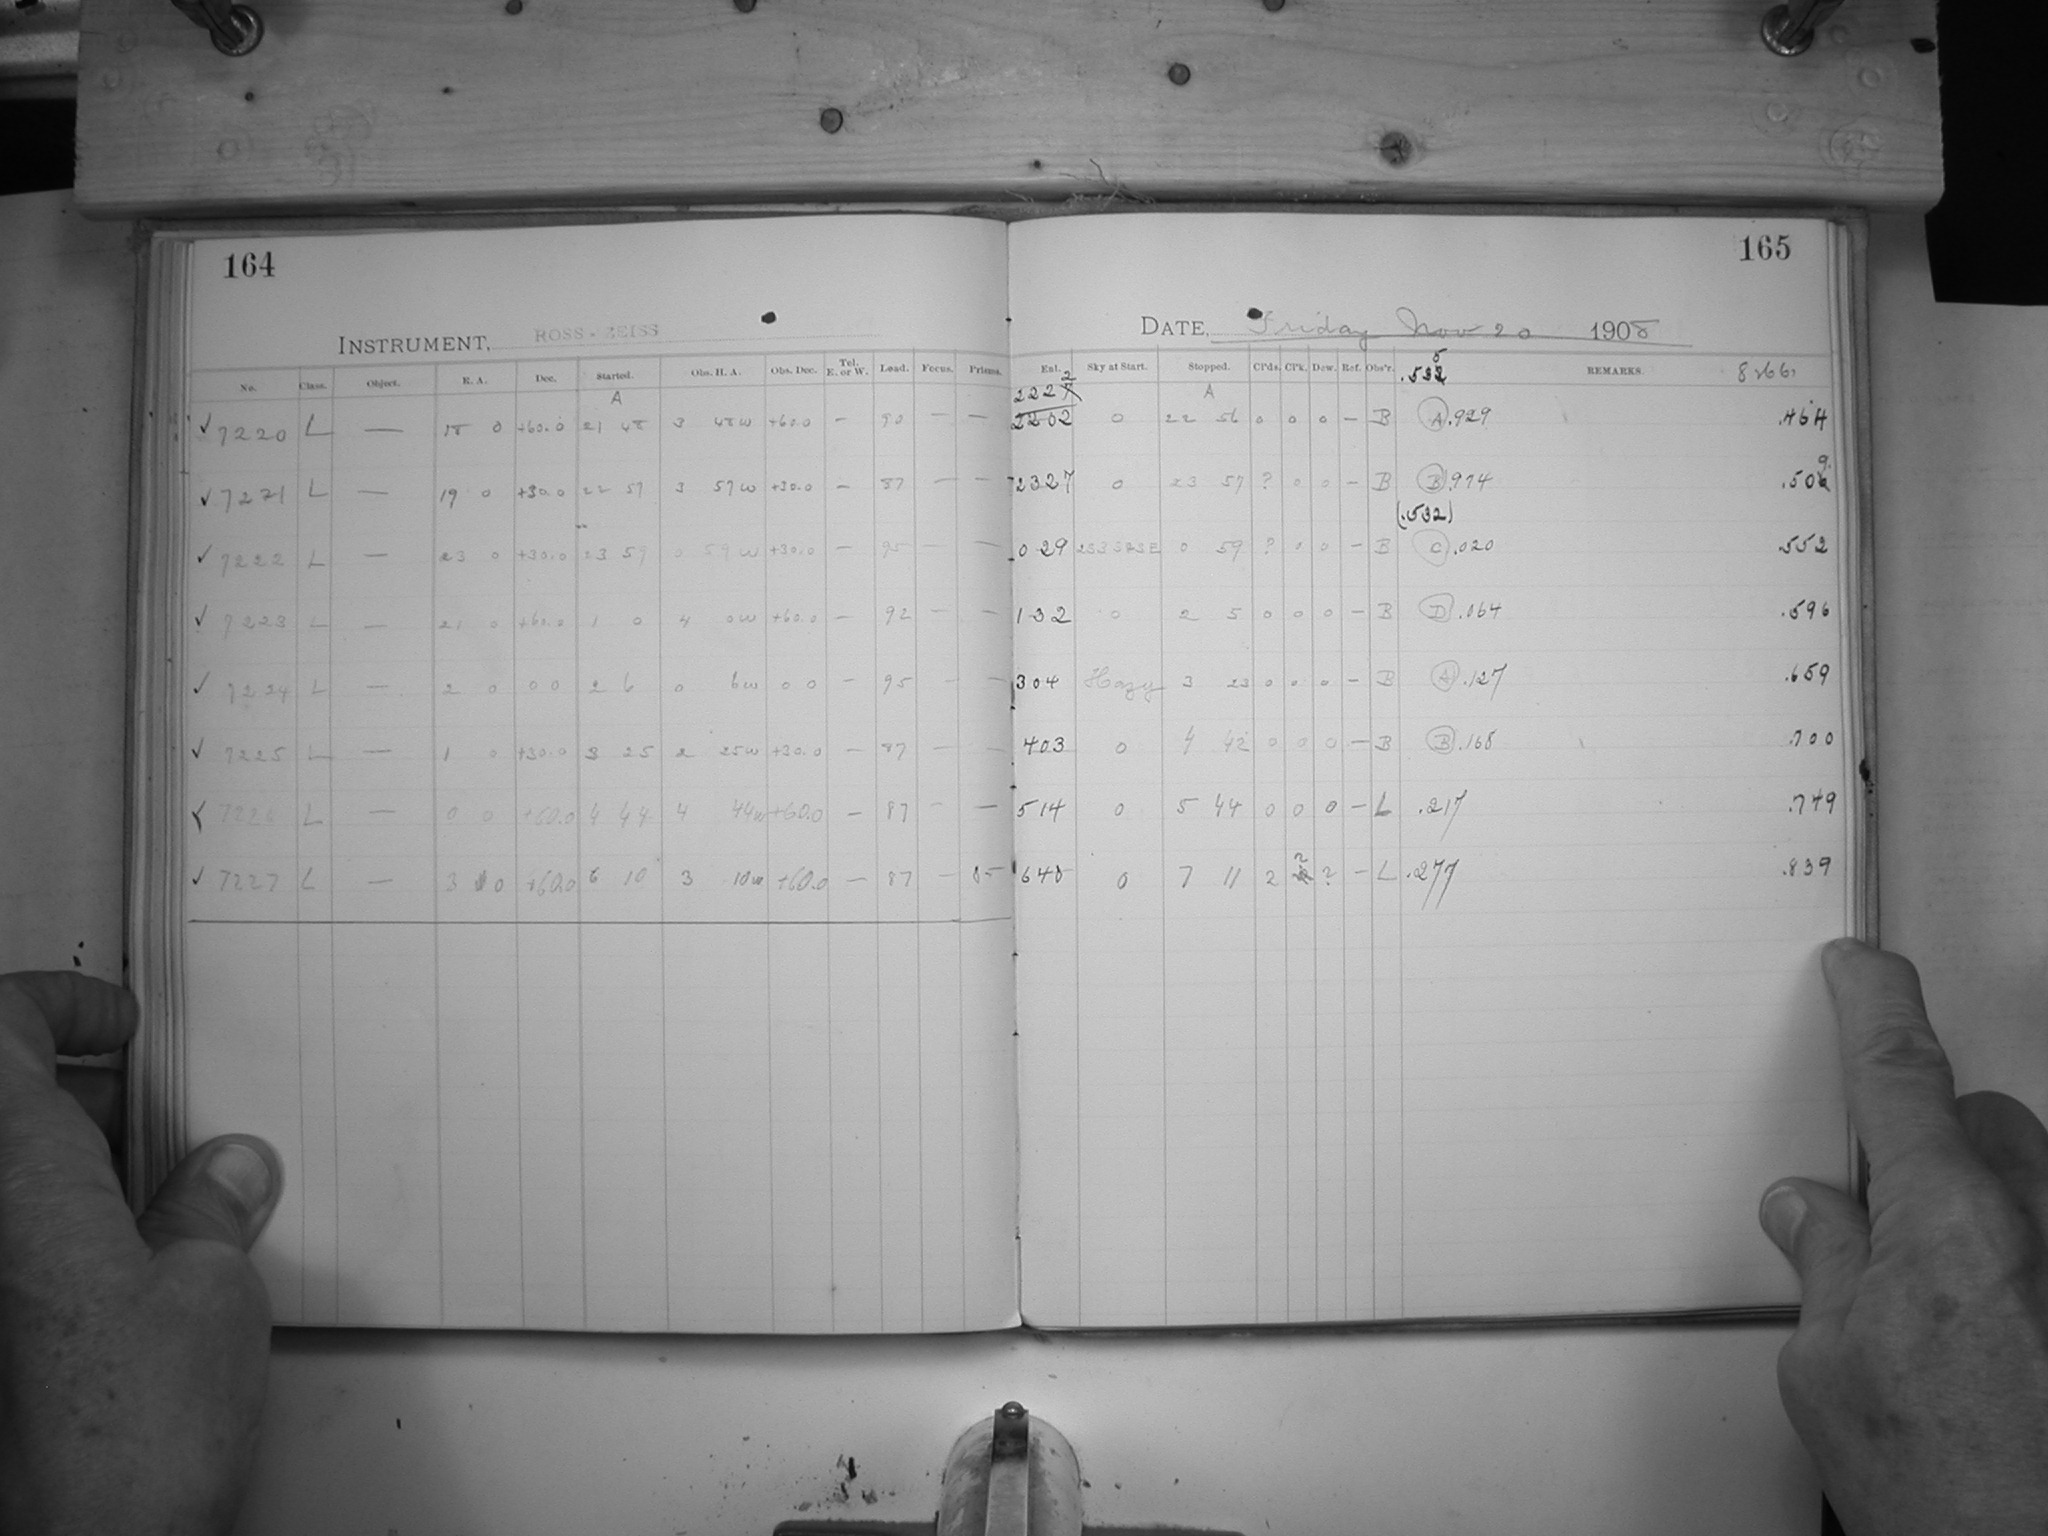 164
165
INSTRUMENT, ROSS-ZEISS
DATE, Friday Nov 20 1908
No. Class. Object. R. A. Dec. Started. Obs. H. A. Obs. Dec. Tel. E. or W. Lead. Focus. Prisms. Enl. Sky at Start. Stopped. Cl'ds. Cl'k. Dew. Ref. Obs'r. REMARKS.
A 2 A
✓ 7220 L — 18 0 +60.0 21 48 3 48w +60.0 — 90 — — 2202 0 22 56 0 0 0 — B (A) .929 .464
✓ 7221 L — 19 0 +30.0 22 57 3 57w +30.0 — 87 — — 2327 0 23 57 ? 0 0 — B (B) .974 .50 9
(.532)
✓ 7222 L — 23 0 +30.0 23 59 0 59w +30.0 — 95 — — 0 29 0 59 ? 0 0 — B (C) .020 .552
✓ 7223 L — 21 0 +60.0 1 0 4 0w +60.0 — 92 — — 132 0 2 5 0 0 0 — B (D) .064 .596
✓ 7224 L — 2 0 0 0 2 6 0 6w 0 0 — 95 — — 304 Hazy 3 23 0 0 0 — B (A) .127 .659
✓ 7225 L — 1 0 +30.0 3 25 2 25w +30.0 — 87 — — 403 0 4 42 0 0 0 — B (B) .168 .700
✓ 7226 L — 0 0 +60.0 4 44 4 44w +60.0 — 87 — — 514 0 5 44 0 0 0 — L .217 .749
✓ 7227 L — 3 0 +60.0 6 10 3 10w +60.0 — 87 — 648 0 7 11 2 ? ? — L .277 .839